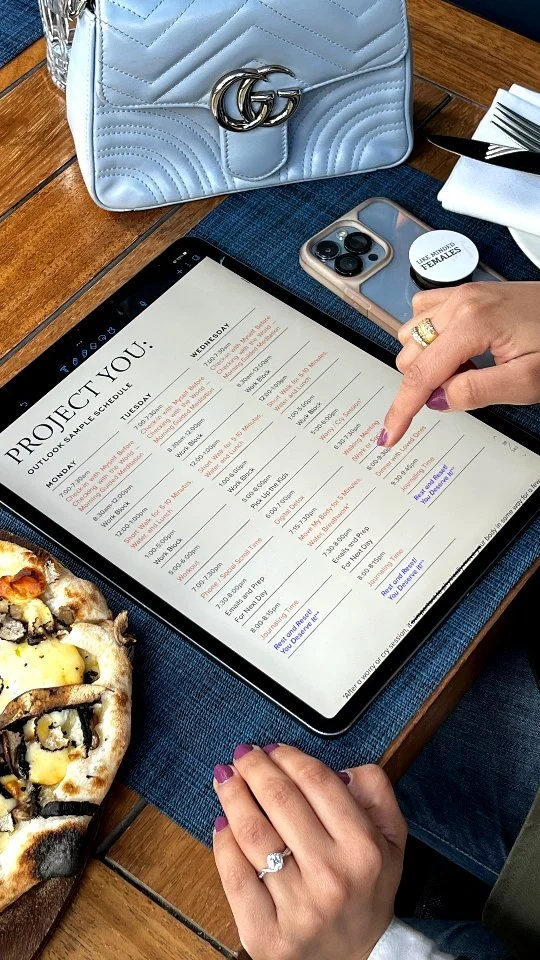 LIKE MINDED
FEMALES
PROJECT YOU:
OUTLOOK SAMPLE SCHEDULE
MONDAY
7:00-7:30am
Check-in with Myself Before
Checking in with the World
Morning Guided Meditation
8:30am-12:00pm
Work Block
12:00-1:00pm
Short Walk for 5-10 Minutes,
Water and Lunch
1:00-5:00pm
Work Block
5:00-6:00pm
Workout
7:00-7:30pm
Phone / Social Scroll Time
7:30-8:00pm
Emails and Prep
For Next Day
8:00-8:15pm
Journaling Time
Rest and Reset!
You Deserve It!
TUESDAY
7:00-7:30am
Check-in with Myself Before
Checking in with the World
Morning Guided Meditation
8:30am-12:00pm
Work Block
12:00-1:00pm
Short Walk for 5-10 Minutes,
Water and Lunch
1:00-5:00pm
Work Block
5:00-6:00pm
Pick Up the Kids
6:00-7:00pm
Digital Detox
7:15-7:30pm
Move My Body for 5 Minutes,
Water, Breathwork
7:30-8:00pm
Emails and Prep
For Next Day
8:00-8:15pm
Journaling Time
Rest and Reset!
You Deserve It!
WEDNESDAY
7:00-7:30am
Check-in with Myself Before
Checking in with the World
Morning Guided Meditation
8:30am-12:00pm
Work Block
12:00-1:00pm
Short Walk for 5-10 Minutes,
Water and Lunch
1:00-5:00pm
Work Block
5:00-6:00pm
Worry / Cry Session*
6:30-7:30pm
Walking Meeting
8:00-9:30pm
Dinner with Loved Ones
9:30-9:45pm
Journaling Time
Rest and Reset!
You Deserve It!
*After a worry or cry session, your body in some way for a few